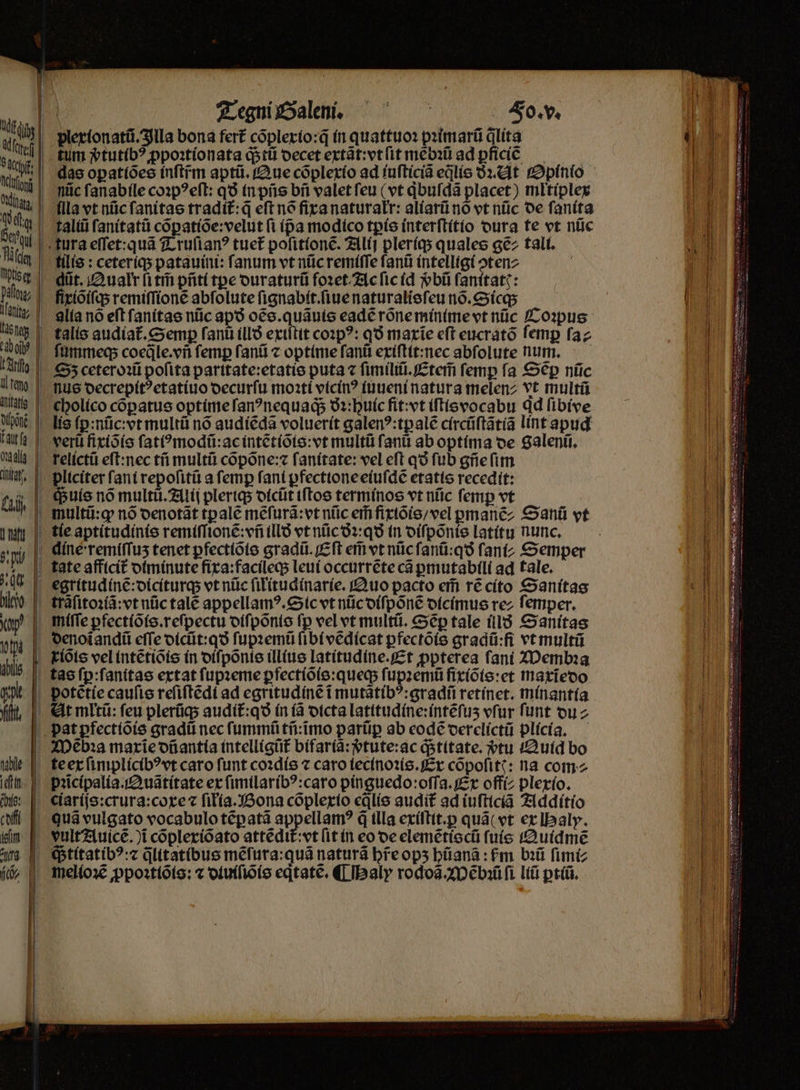 Tegni Galeni. Fo.v.
plexionatū. Illa bona fert̄ cōplexio: q̄ in quattuor primarū q̄lita
tum v̓tutibꝰ ꝓportionata q̄ꝫtū decet extāt: vt sit mēbrū ad ꝑficiē
das opatiōes instr̄m aptū. Que cōplexio ad iusticiā eq̄lis dr̄. At Opinio
nūc sanabile corpꝰ est: qd̓ in pn̄s bn̄ valet seu (vt q̓busdā placet) ml̓tiplex
illa vt nūc sanitas tradit̄: q̄ est nō fixa natural̓r: aliarū nō vt nūc de sanita
taliū sanitatū cōpatiōe: velut si ip̄a modico tp̄is interstitio dura te vt nūc
tura esset: quā Trusianꝰ tuet̄ positionē. Alij pleriqꝫ quales gē⸗ tali.
tilis : ceteriqꝫ patauini: sanum vt nūc remisse sanū intelligi ↄten⸗
dūt. Qual̓r si tn̄ pn̄ti tp̄e duraturū foret. Ac sic id v̓bū sanitatꝭ:
fixiōisqꝫ remissionē absolute signabit. siue naturalis seu nō. Sicqꝫ
alia nō est sanitas nūc apd̓ oēs. quāuis eadē rōne minime vt nūc Corpus
talis audiat̄. Semꝑ sanū illd̓ existit corpꝰ: qd̓ maxīe est eucratō semꝑ sa⸗
summeqꝫ coeq̄le. vn̄ semꝑ sanū ⁊ optime sanū existit: nec absolute num.
Sꝫ ceterorū posita paritate: etatis puta ⁊ similiū. Etem̄ semꝑ sa Sēꝑ nūc
nus decrepitꝰ etatiuo decursu morti vicinꝰ iuueni natura melen⸗ vt multū
cholico cōpatus optime sanꝰ nequaq̄ꝫ dr̄: huic fit: vt istis vocabu qd̄ sibi ve
lis sꝑ: nūc: vt multū nō audiēdā voluerit galenꝰ: tp̄alē circūstātiā lint apud
verū fixiōis satiꝰ modū: ac intētiōis: vt multū sanū ab optima de galenū.
relictū est: nec tn̄ multū cōpōne: ⁊ sanitate: vel est qd̓ sub gn̄e sim
pliciter sani repositū a semꝑ sani ꝑfectione eiusdē etatis recedit:
q̄ꝫuis nō multū. Alij pleriqꝫ dicūt istos terminos vt nūc semꝑ vt
multū: ꝙ nō denotāt tp̄alē mēsurā: vt nūc em̄ fixiōis/ vel ꝑmanē⸗ Sanū vt
tie aptitudinis remissionē: vn̄ illd̓ vt nūc dr̄: qd̓ in dispōnis latitu nunc.
dine remissuꝫ tenet ꝑfectiōis gradū. Est em̄ vt nūc sanū: qd̓ sani⸗ Semper
tate afficit̄ diminute fixa: facileqꝫ leui occurrēte cā ꝑmutabili ad tale.
egritudinē: diciturqꝫ vt nūc sil̓itudinarie. Quo pacto em̄ rē cito Sanitas
trāsitoriā: vt nūc talē appellamꝰ. Sic vt nūc dispōnē dicimus re⸗ semper.
misse ꝑfectiōis. respectu dispōnis sꝑ vel vt multū. Sēꝑ tale illd̓ Sanitas
denoīandū esse dicūt: qd̓ supremū sibi vēdicat ꝑfectōis gradū: si vt multū
xiōis vel intētiōis in dispōnis illius latitudine. Et ꝓpterea sani Membra
tas sꝑ: sanitas extat supreme ꝑfectiōis: queqꝫ supremū fixiōis: et maxīe do
potētie causis resistēdi ad egritudinē ī mutātibꝰ: gradū retinet. minantia
At ml̓tū: seu plerūqꝫ audit̄: qd̓ in iā dicta latitudine: intēsuꝫ vsur sunt du⸗
pat ꝑfectiōis gradū nec summū tn̄: īmo parūꝑ ab eodē derelictū plicia.
Mēbra maxīe dn̄antia intelligūt̄ bifariā: v̓tute: ac q̄ꝫtitate. v̓tu Quid bo
te ex simplicibꝰ vt caro sunt cordis ⁊ caro iecinoris. Ex cōpositꝭ: na com⸗
pricipalia. Quātitate ex similaribꝰ: caro pinguedo: ossa. Ex offi⸗ plexio.
ciarijs: crura: coxe ⁊ sil̓ia. Bona cōplexio eq̄lis audit̄ ad iusticiā Additio
quā vulgato vocabulo tēpatā appellamꝰ q̄ illa existit. ꝑ quā (vt ex Haly.
vult Auicē.) ī cōplexiōato attēdit̄: vt sit in eo de elemētis cū suis Quid mē
q̄ꝫtitatibꝰ: ⁊ q̄litatibus mēsura: quā naturā hr̄e opꝫ hūanā : s̓m brū simi⸗
meliorē ꝓportiōis: ⁊ diuisiōis eq̄tatē. ¶ Haly rodoā. Mēbrū si liū ptiū.